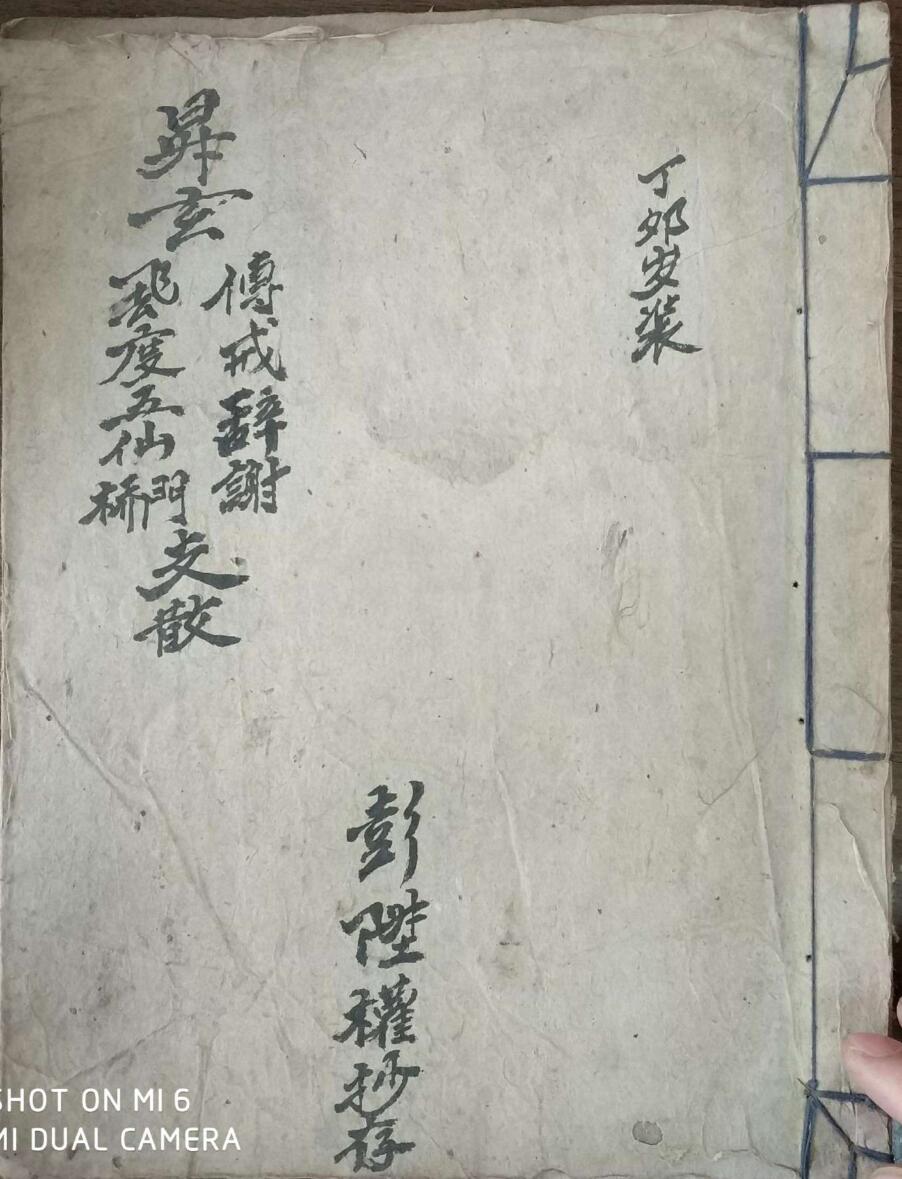 丁卯安装
傳戒辭謝
昇玄
度五仙門橋
文散
彭陞權抄存
SHOT ON MI 6
MI DUAL CAMERA